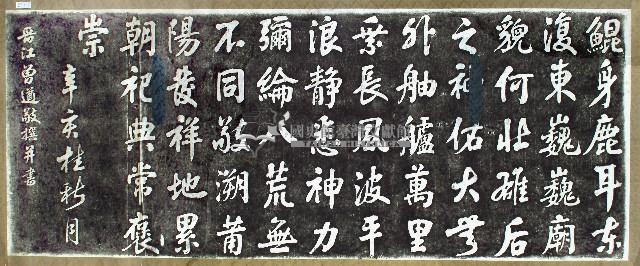 鯤身鹿耳東
復東巍巍廟
貌何壯雄后
之神佑大无
外舳艫萬里
乘長風波平
浪靜悉神力
彌綸八荒無
不同敬溯莆
陽發祥地累
朝祀典常褒
崇
辛亥桂秋月
丹江曾道敬撰并書
國史館臺灣文獻館